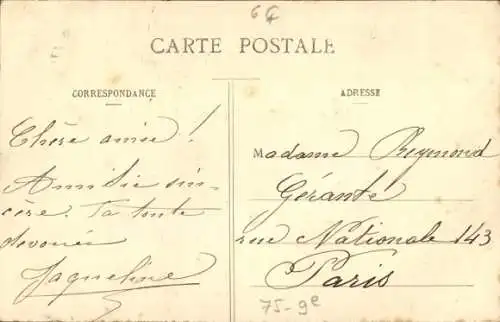 6f
CARTE POSTALE
CORRESPONDANCE
Chère amie !
Amitié sin-
cère. Ta toute
dévouée
Jaqueline
ADRESSE
Madame Reymond
Gérante
rue Nationale 143
Paris
75-9e